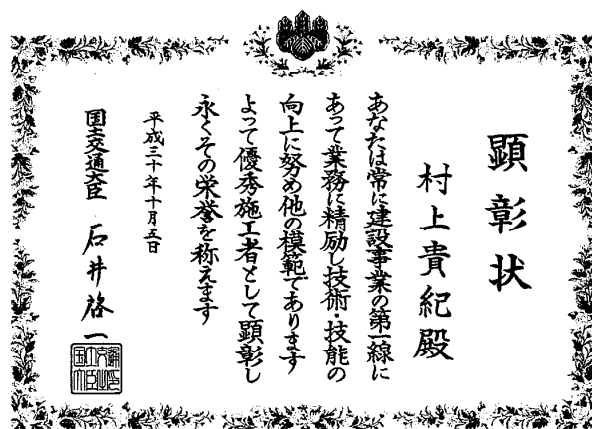 顕彰状
村上貴紀殿
あなたは常に建設事業の第一線に
あって業務に精励し技術・技能の
向上に努め他の模範であります
よって優秀施工者として顕彰し
永くその栄誉を称えます
平成三十年十月五日
国土交通大臣 石井啓一